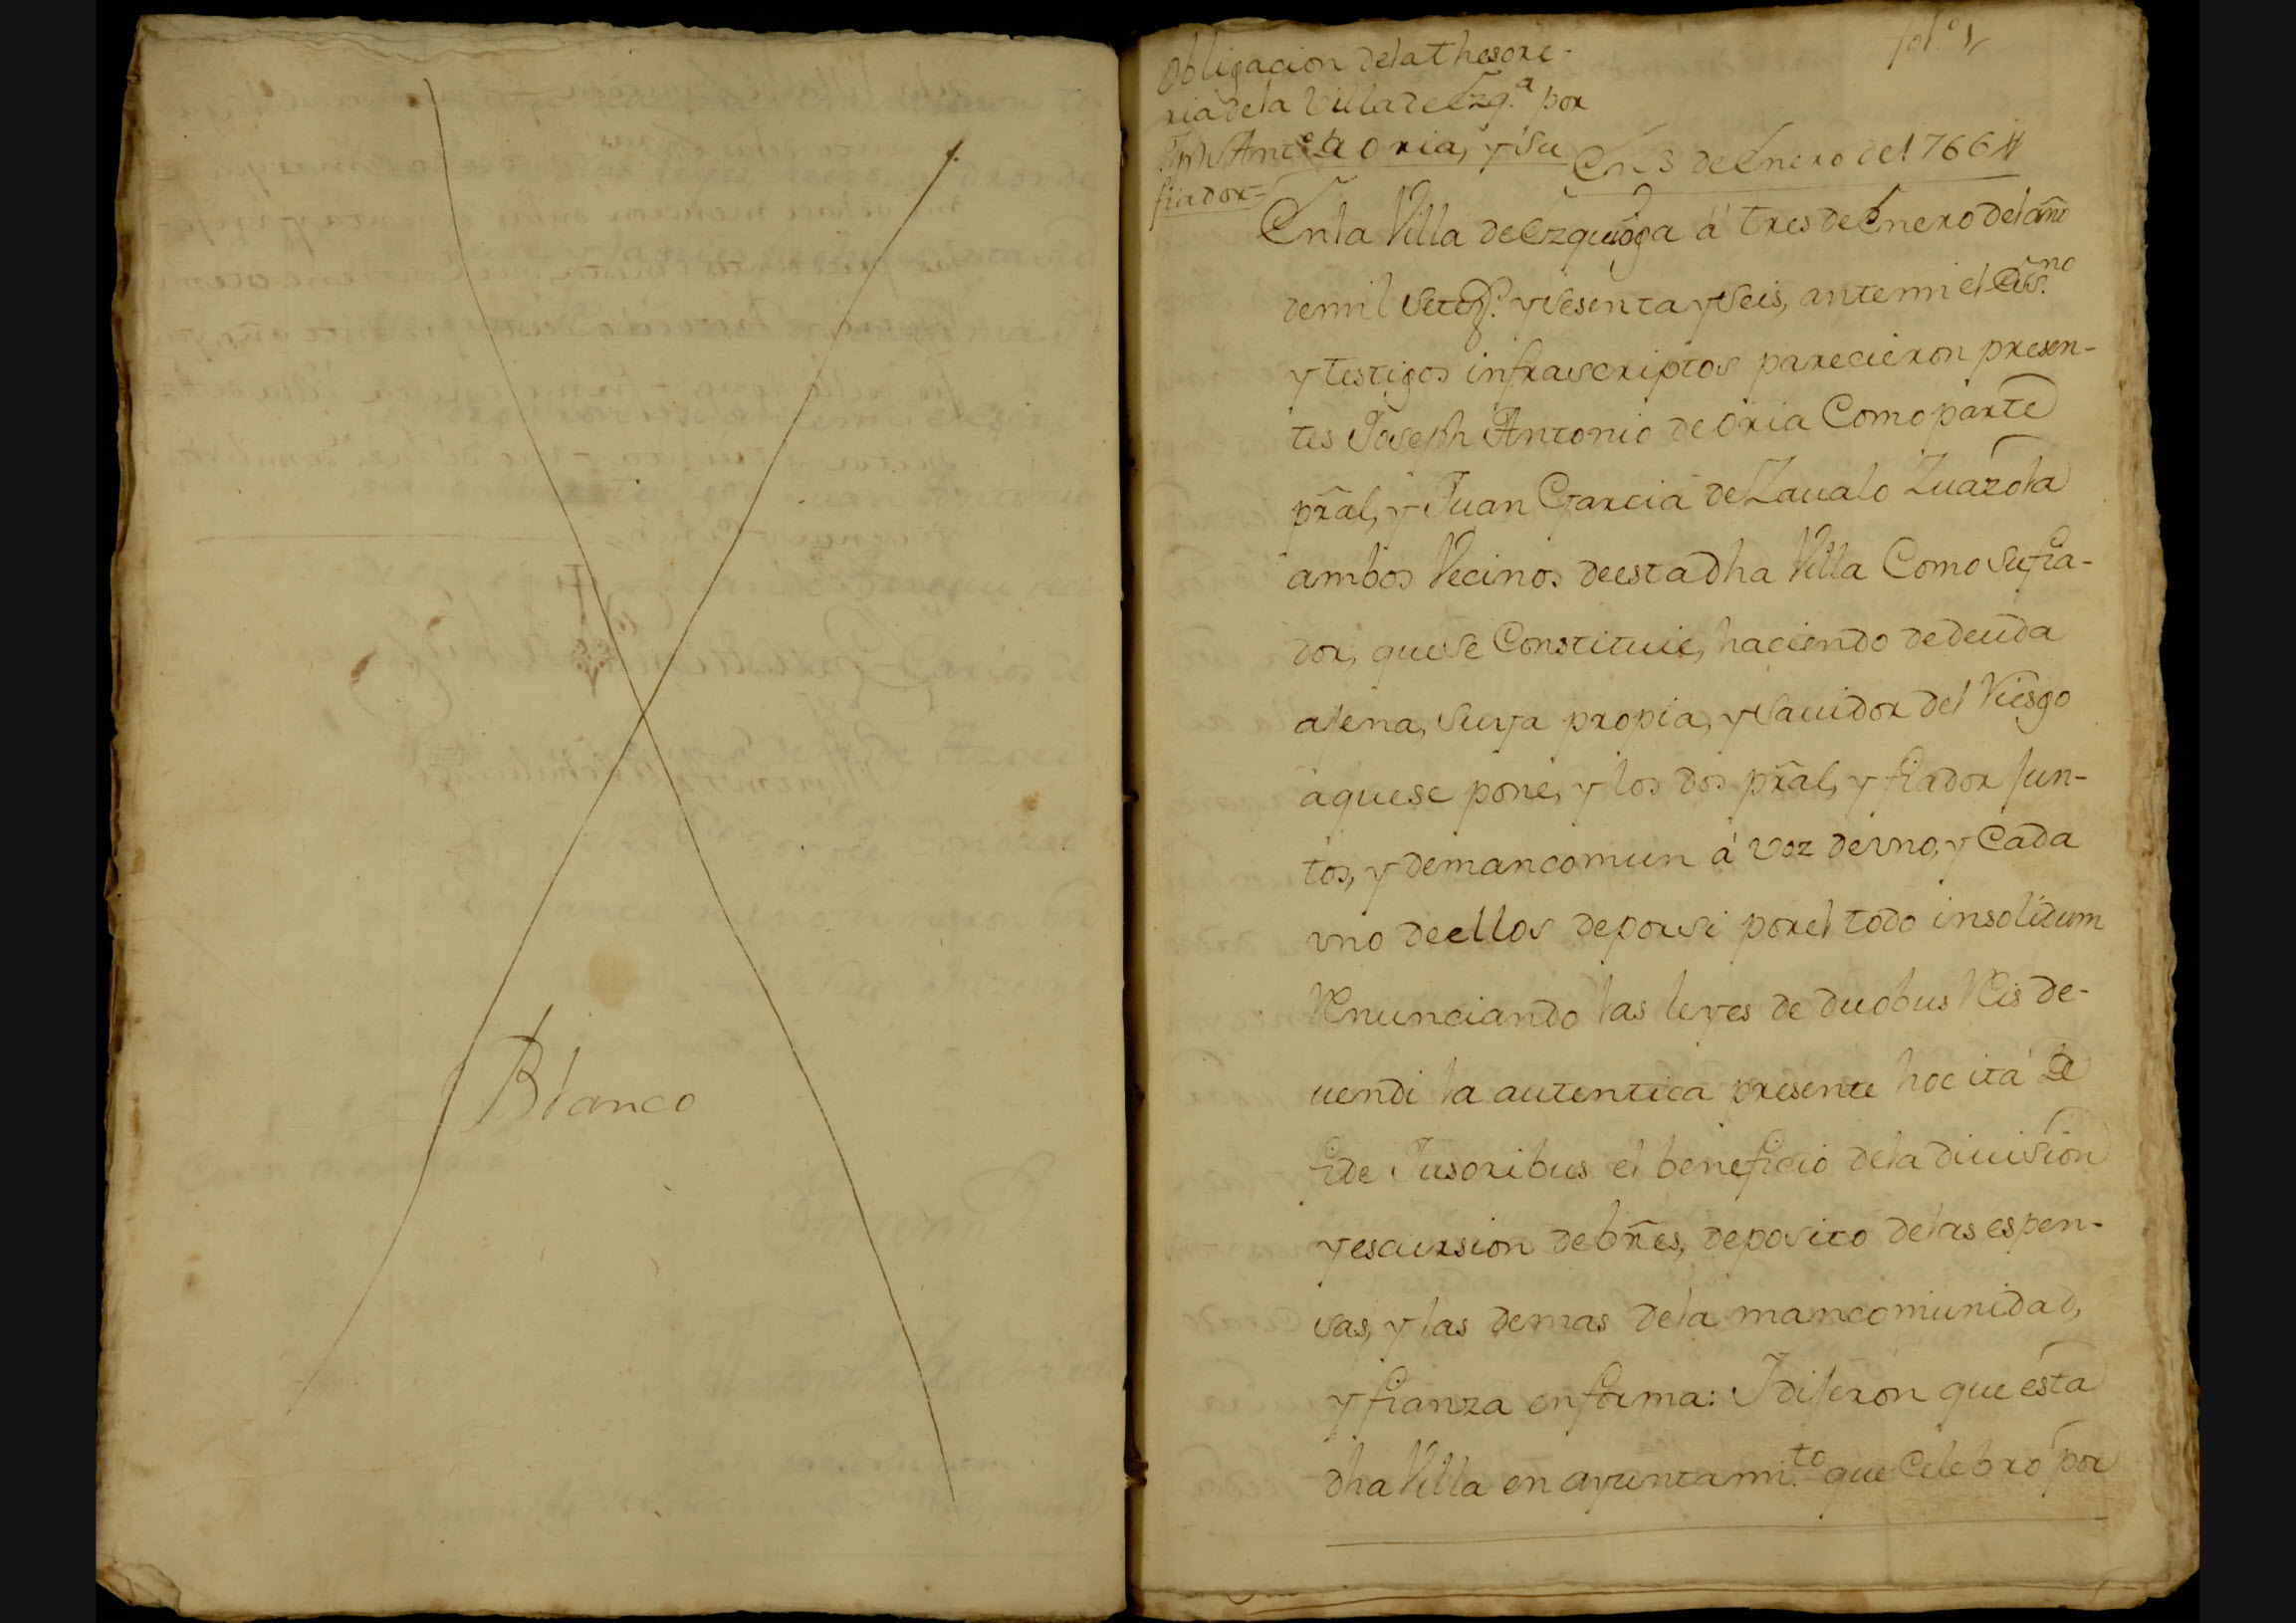 Blanco
fol.º 1,
Obligacion dela thesore-
ria dela Villa de Ezq.ª por
Jph Ant.º de Oria, y su
fiador=
En 3 de Enero del 766 //
En la Villa de Ezquioga á tres de Enero del año
de mil setez.s y sesenta y seis, ante mi el Es.no
y testigos infrascriptos parecieron presen-
tes Joseph Antonio de Oria Como parte
pral, y Juan Garcia de Zavalo Zuazola
ambos Vecinos de esta dha Villa Como su fia-
dor, que se Constituie, haciendo de deuda
ajena, suya propia, y savidor del Riesgo
aque se pone, y los dos pral, y fiador jun-
tos, y de mancomun á voz de vno, y Cada
vno de ellos de por si por el todo insolidum
Renunciando las leyes de duobus Reis de-
uendi la autentica presente hoc ita de
fide Jusoribus el beneficio dela diuision
y escursion de bñes, deposito delas espen-
sas, y las demas dela mancomunidad,
y fianza en forma: I dijeron que esta
dha Villa en ayuntami.to que Celebró por